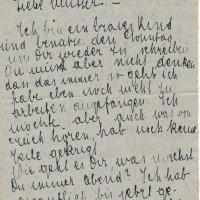 Liebe Mutter. –
Ich bin ein braves Kind
und benutze den Sonntag,
um Dir wieder zu schreiben
Du musst aber nicht denken
dass das immer so geht. Ich
habe eben noch nicht zu
arbeiten angefangen. Ich
möchte aber auch was von
Euch hören, hab noch keine
Zeile gekriegt.
Wie geht es Dir, was machst
Du immer abend? Ich hab
eigentlich bis jetzt ge-